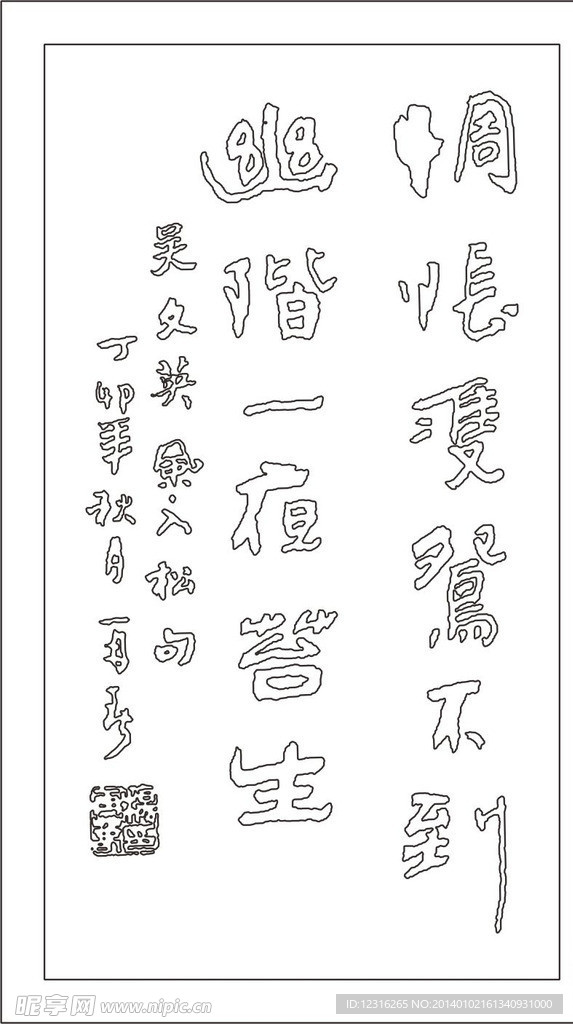 惆悵雙鴛不到
幽階一亱苔生
吴文英風入松句
丁卯年秋月
昵享网 www.nipic.cn
ID:12316265 NO:20140102161340931000